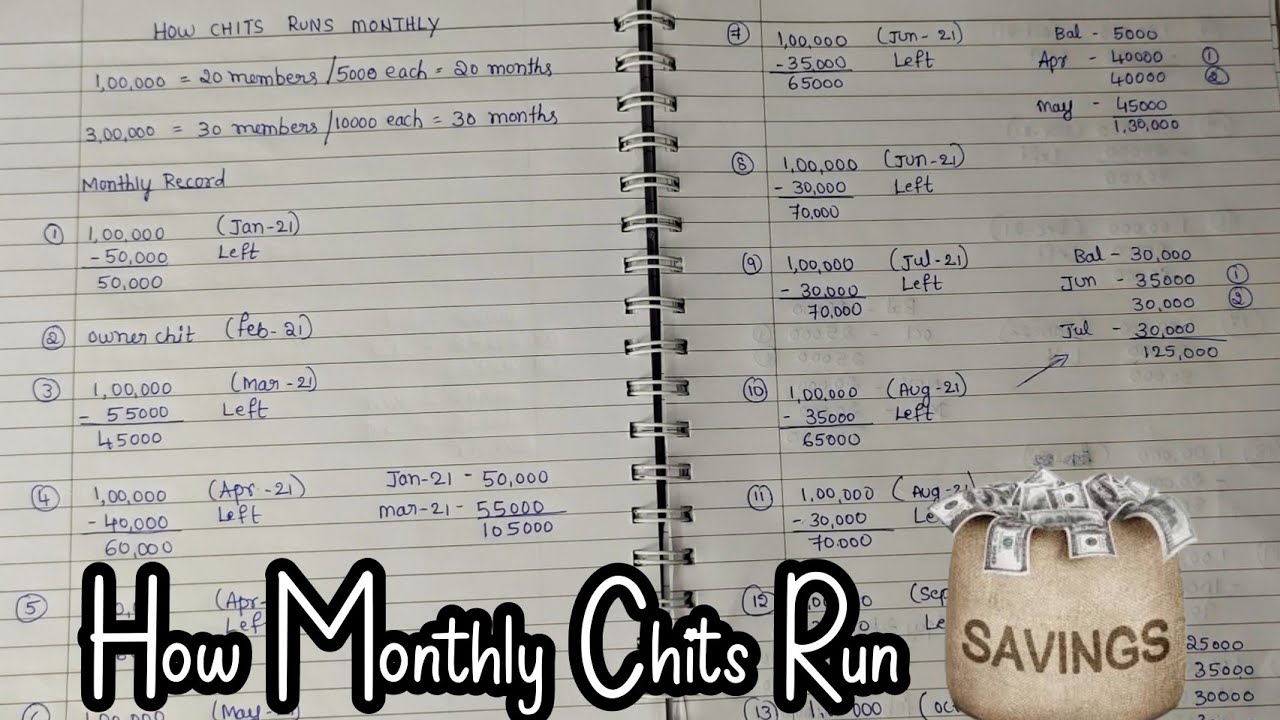 HOW CHITS RUNS MONTHLY
1,00,000 = 20 members /5000 each = 20 months
3,00,000 = 30 members /10000 each = 30 months
Monthly Record
① 1,00,000 (Jan-21)
- 50,000 Left
50,000
② owner chit (feb-21)
③ 1,00,000 (Mar-21)
- 55000 Left
45000
④ 1,00,000 (Apr-21) Jan-21 - 50,000
- 40,000 Left mar-21 - 55000
60,000 105000
⑤ (Apr-
Lef
(May
⑦ 1,00,000 (Jun-21) Bal - 5000
- 35,000 Left Apr - 40000 ①
65000 40000 ②
may - 45000
1,30,000
⑧ 1,00,000 (Jun-21)
- 30,000 Left
70,000
⑨ 1,00,000 (Jul-21) Bal - 30,000
- 30,000 Left Jun - 35000 ①
70,000 30,000 ②
Jul - 30,000
125,000
⑩ 1,00,000 (Aug-21)
- 35000 Left
65000
⑪ 1,00,000 (Aug-21
- 30,000 Le
70.000
⑫ (Sep
Le
25000
35000
⑬ (oct 30000
How Monthly Chits Run
SAVINGS